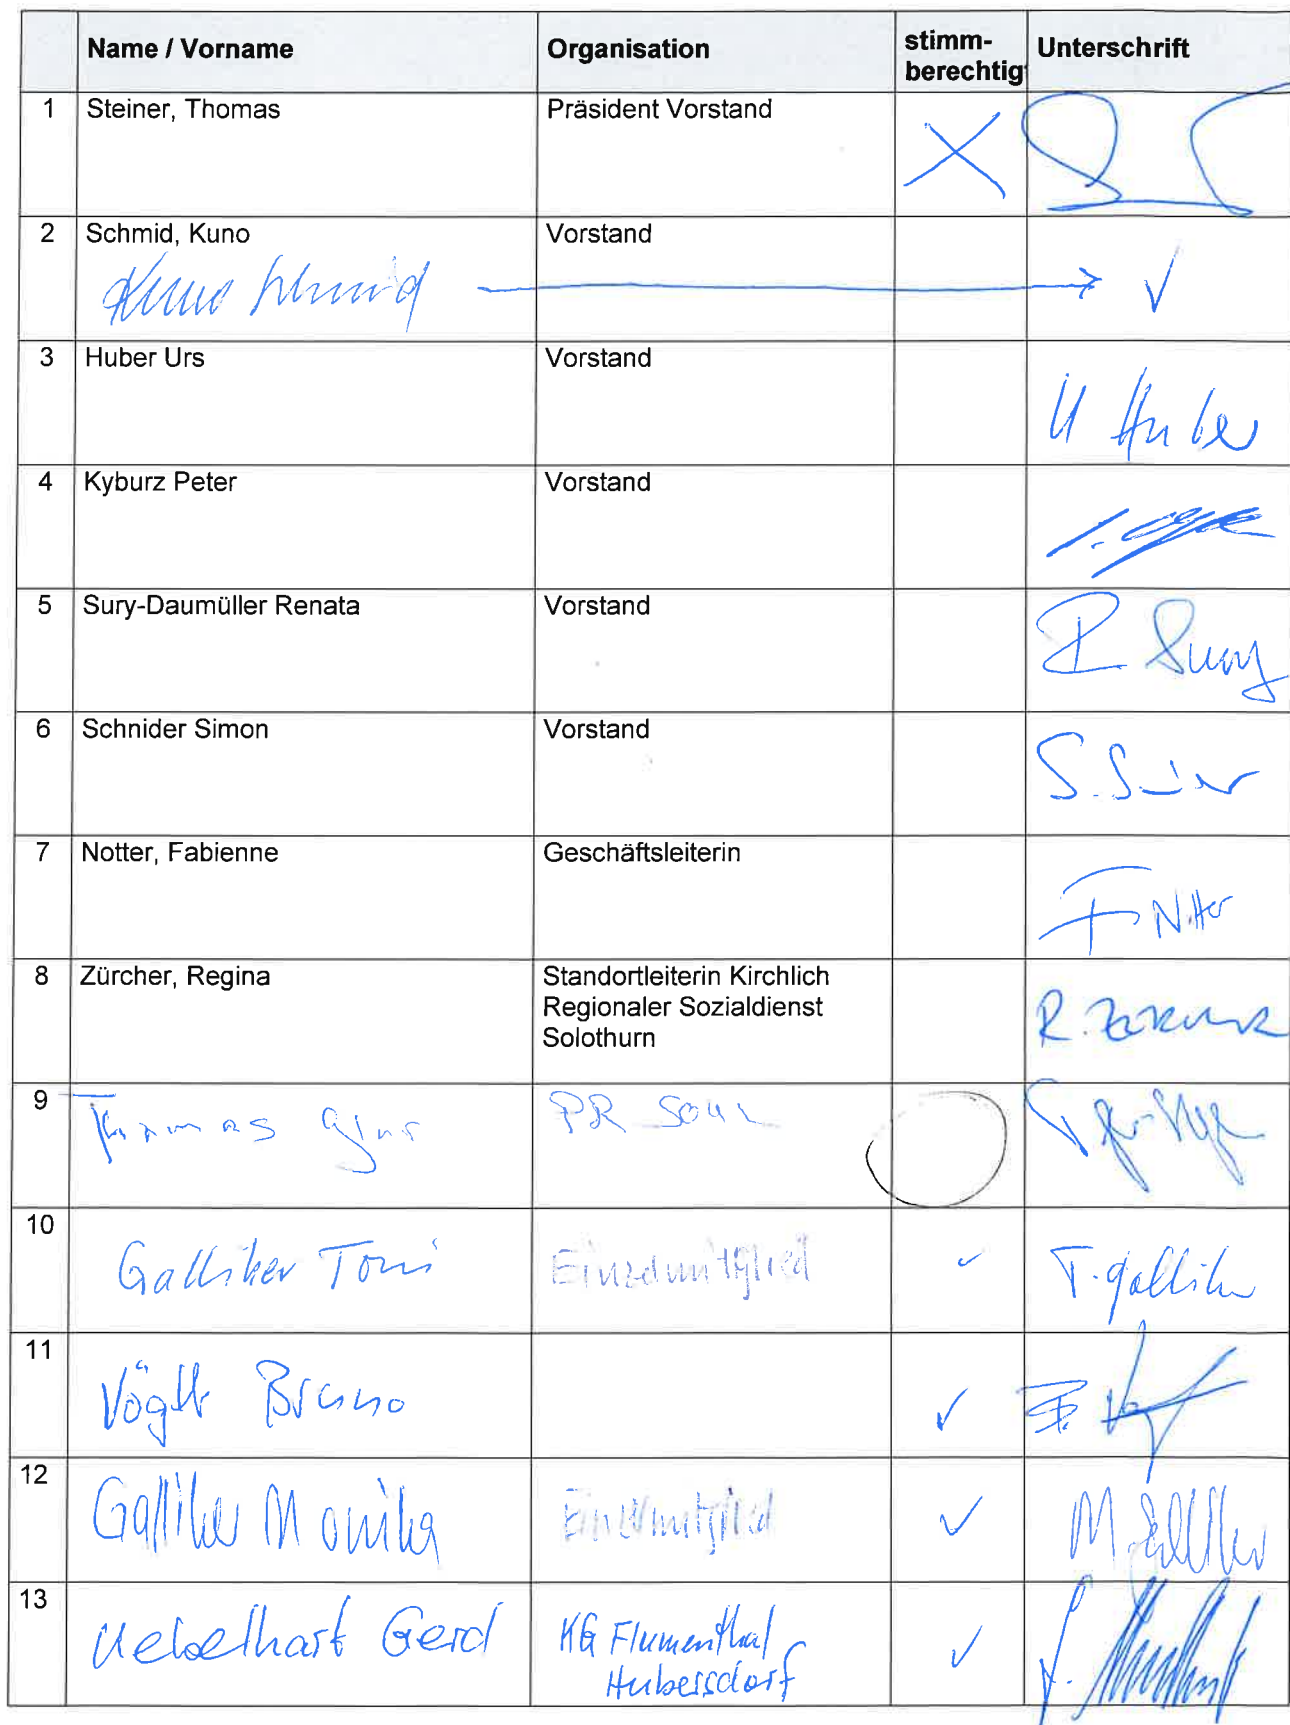 Name / Vorname Organisation stimm- Unterschrift
berechtig
1 Steiner, Thomas Präsident Vorstand
2 Schmid, Kuno Vorstand
Kuno Schmid ✓
3 Huber Urs Vorstand
U Huber
4 Kyburz Peter Vorstand
5 Sury-Daumüller Renata Vorstand
R Sury
6 Schnider Simon Vorstand
7 Notter, Fabienne Geschäftsleiterin
F Notter
8 Zürcher, Regina Standortleiterin Kirchlich
Regionaler Sozialdienst
Solothurn
R. Zürcher
9 Thomas PR
10 Galliker Toni Einzelmitglied ✓ T. Galliker
11 Vögtli Bruno ✓
12 Galliker Monika Einzelmitglied ✓ M Galliker
13 Uebelhart Gerd KG Flumenthal ✓
Hubersdorf